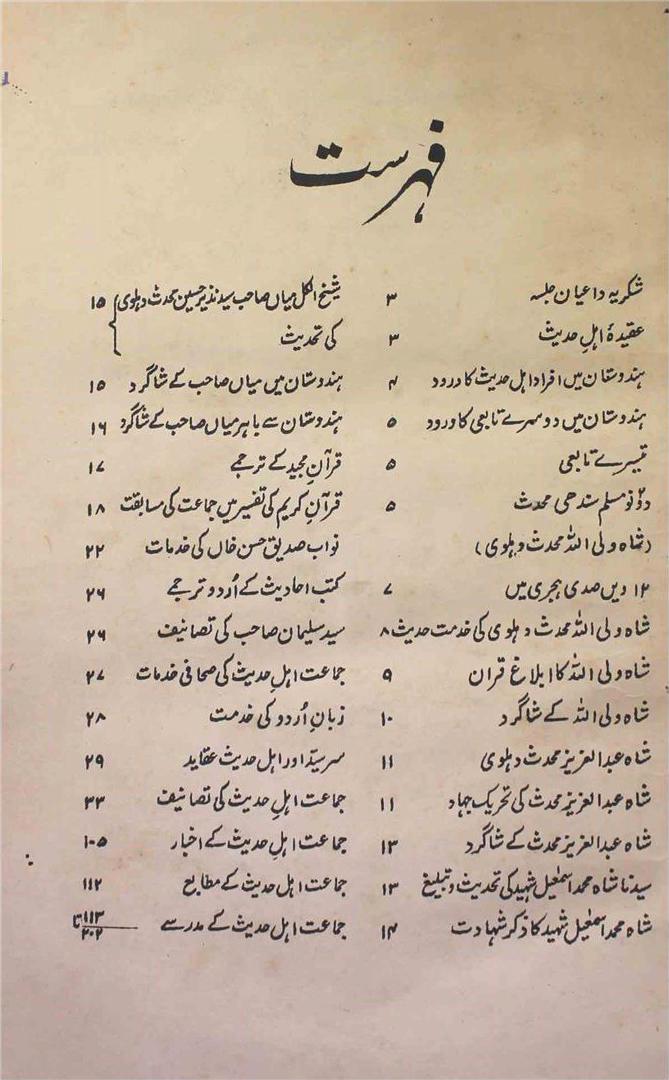 فہرست
شکریہ داعیان جلسہ ۳
عقیدۂ اہلِ حدیث ۳
ہندوستان میں افراد اہل حدیث کا ورود ۴
ہندوستان میں دوسرے تابعی کا ورود ۵
تیسرے تابعی ۵
دو نو مسلم سندھی محدث ۵
(شاہ ولی اللہ محدث دہلوی)
۱۲ ویں صدی ہجری میں ۷
شاہ ولی اللہ محدث دہلوی کی خدمت حدیث ۸
شاہ ولی اللہ کا ابلاغ قران ۹
شاہ ولی اللہ کے شاگرد ۱۰
شاہ عبدالعزیز محدث دہلوی ۱۱
شاہ عبدالعزیز محدث کی تحریک جہاد ۱۱
شاہ عبدالعزیز محدث کے شاگرد ۱۳
سیدنا شاہ محمد اسمٰعیل شہید کی تحدیث و تبلیغ ۱۳
شاہ محمد اسمٰعیل شہید کا ذکر شہادت ۱۴
شیخ الکل میاں صاحب سید نذیر حسین محدث دہلوی ۱۵
کی تحدیث
ہندوستان میں میاں صاحب کے شاگرد ۱۵
ہندوستان سے باہر میاں صاحب کے شاگرد ۱۶
قرآنِ مجید کے ترجمے ۱۷
قرآنِ کریم کی تفسیر میں جماعت کی مسابقت ۱۸
نواب صدیق حسن خاں کی خدمات ۲۲
کتب احادیث کے اُردو ترجمے ۲۶
سید سلیمان صاحب کی تصانیف ۲۶
جماعت اہلِ حدیث کی صحافی خدمات ۲۷
زبانِ اُردو کی خدمت ۲۸
سرسید اور اہل حدیث عقاید ۲۹
جماعت اہلِ حدیث کی تصانیف ۳۳
جماعت اہلِ حدیث کے اخبار ۱۰۵
جماعت اہل حدیث کے مطابع ۱۱۲
جماعت اہل حدیث کے مدرسے ۱۱۳ تا ۲۰۲